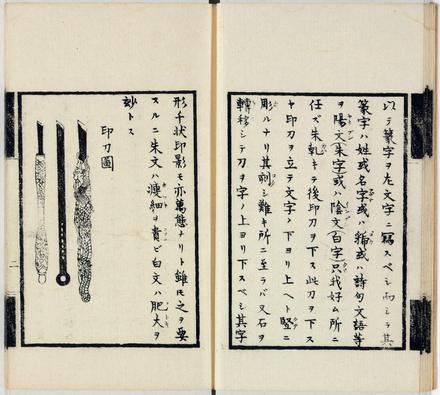 以テ篆字ヲ左文字ニ寫スベシ而シテ其
篆字ハ姓或名字或ハ號或ハ詩句文語等
ヲ陽文朱字或ハ陰文白字只我好ム所ニ
任ズ朱乾キテ後印刀ヲ下ス此刀ヲ下ス
ヤ印刀ヲ立テ文字ノ下ヨリ上ヘト竪ニ
彫ルナリ其剞シ難キ所ニ至ラバ又石ヲ
轉移シテ刀ヲ字ノ上ヨリ下スベシ其字
形千状印影モ亦萬態ナリト雖モ之ヲ要
スルニ朱文ハ瘦細ヲ貴ビ白文ハ肥大ヲ
妙トス
印刀圖
二